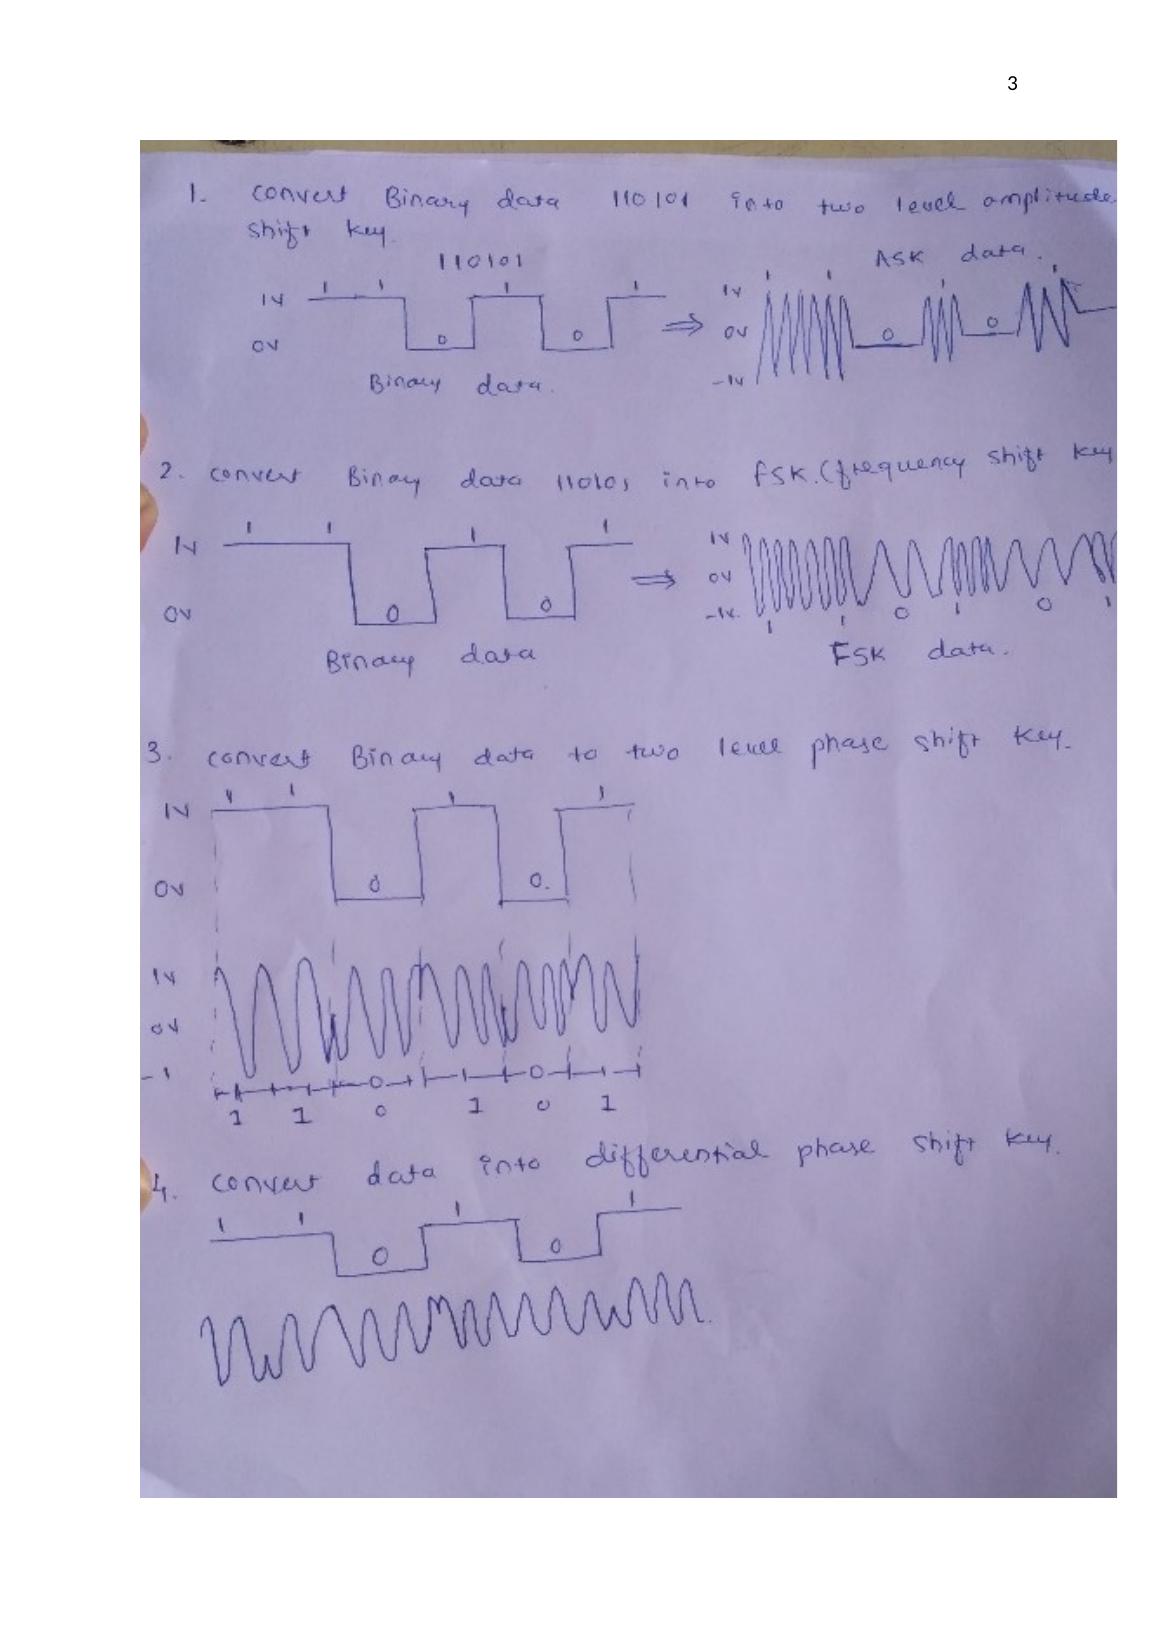 3
1. convert Binary data 110101 into two level amplitude
shift key.
110101
ASK data.
1 1 1 1
1 1 1 1
1V
1V
0V
0 0
0V
0 0
-1V
Binary data.
2. convert Binary data 110101 into FSK. (frequency shift key
1 1 1 1
1V
1V
0V
0V
0 0
-1V.
1 1 0 1 0 1
Binary data
FSK data.
3. convert Binary data to two level phase shift key.
1 1 1 1
1V
0V
0 0.
1V
0V
-1
0 1 0 1
1 1 0 1 0 1
4. convert data into differential phase shift key.
1 1 1 1
0 0